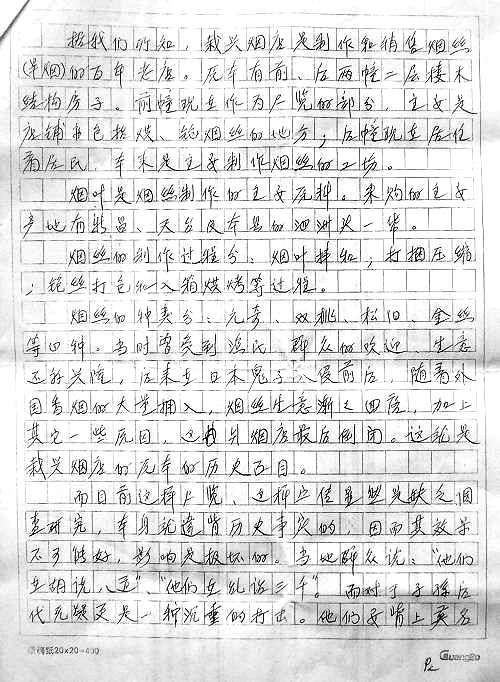 据我们所知，裁兴烟店是制作和销售烟丝
(旱烟)的百年老店。原本有前、后两幢二层楼木
结构房子。前幢现在作为展览的部分，主要是
店铺和包括烘、铇烟丝的地方；后幢现在居住
着居民，本来是主要制作烟丝的工场。
烟叶是烟丝制作的主要原料。采购的主要
产地有新昌、天台及本县的泗洲头一带。
烟丝的制作过程分：烟叶择和；打捆压缩
；铇丝打包和入箱烘烤等过程。
烟丝的种类分：元奇、双桃、松旧、金丝
等四种。当时曾受到渔民、群众的欢迎、生意
还好兴隆，后来在日本鬼子入侵前后，随着外
国香烟的大量拥入，烟丝生意渐之四落，加上
其它一些原因，这个烟店最后倒闭。这就是
裁兴烟店的原本的历史面目。
而目前这样展览、这种定位显然是缺乏调
查研究，本身就违背历史事实的，因而其效果
不可能好，影响是极坏的。当地群众说："他们
在胡说八道"、"他们在乱话三千"。而对于子孙后
代无疑更是一种沉重的打击。他们要背上莫名
原稿纸20×20=400
GuangBo
P2